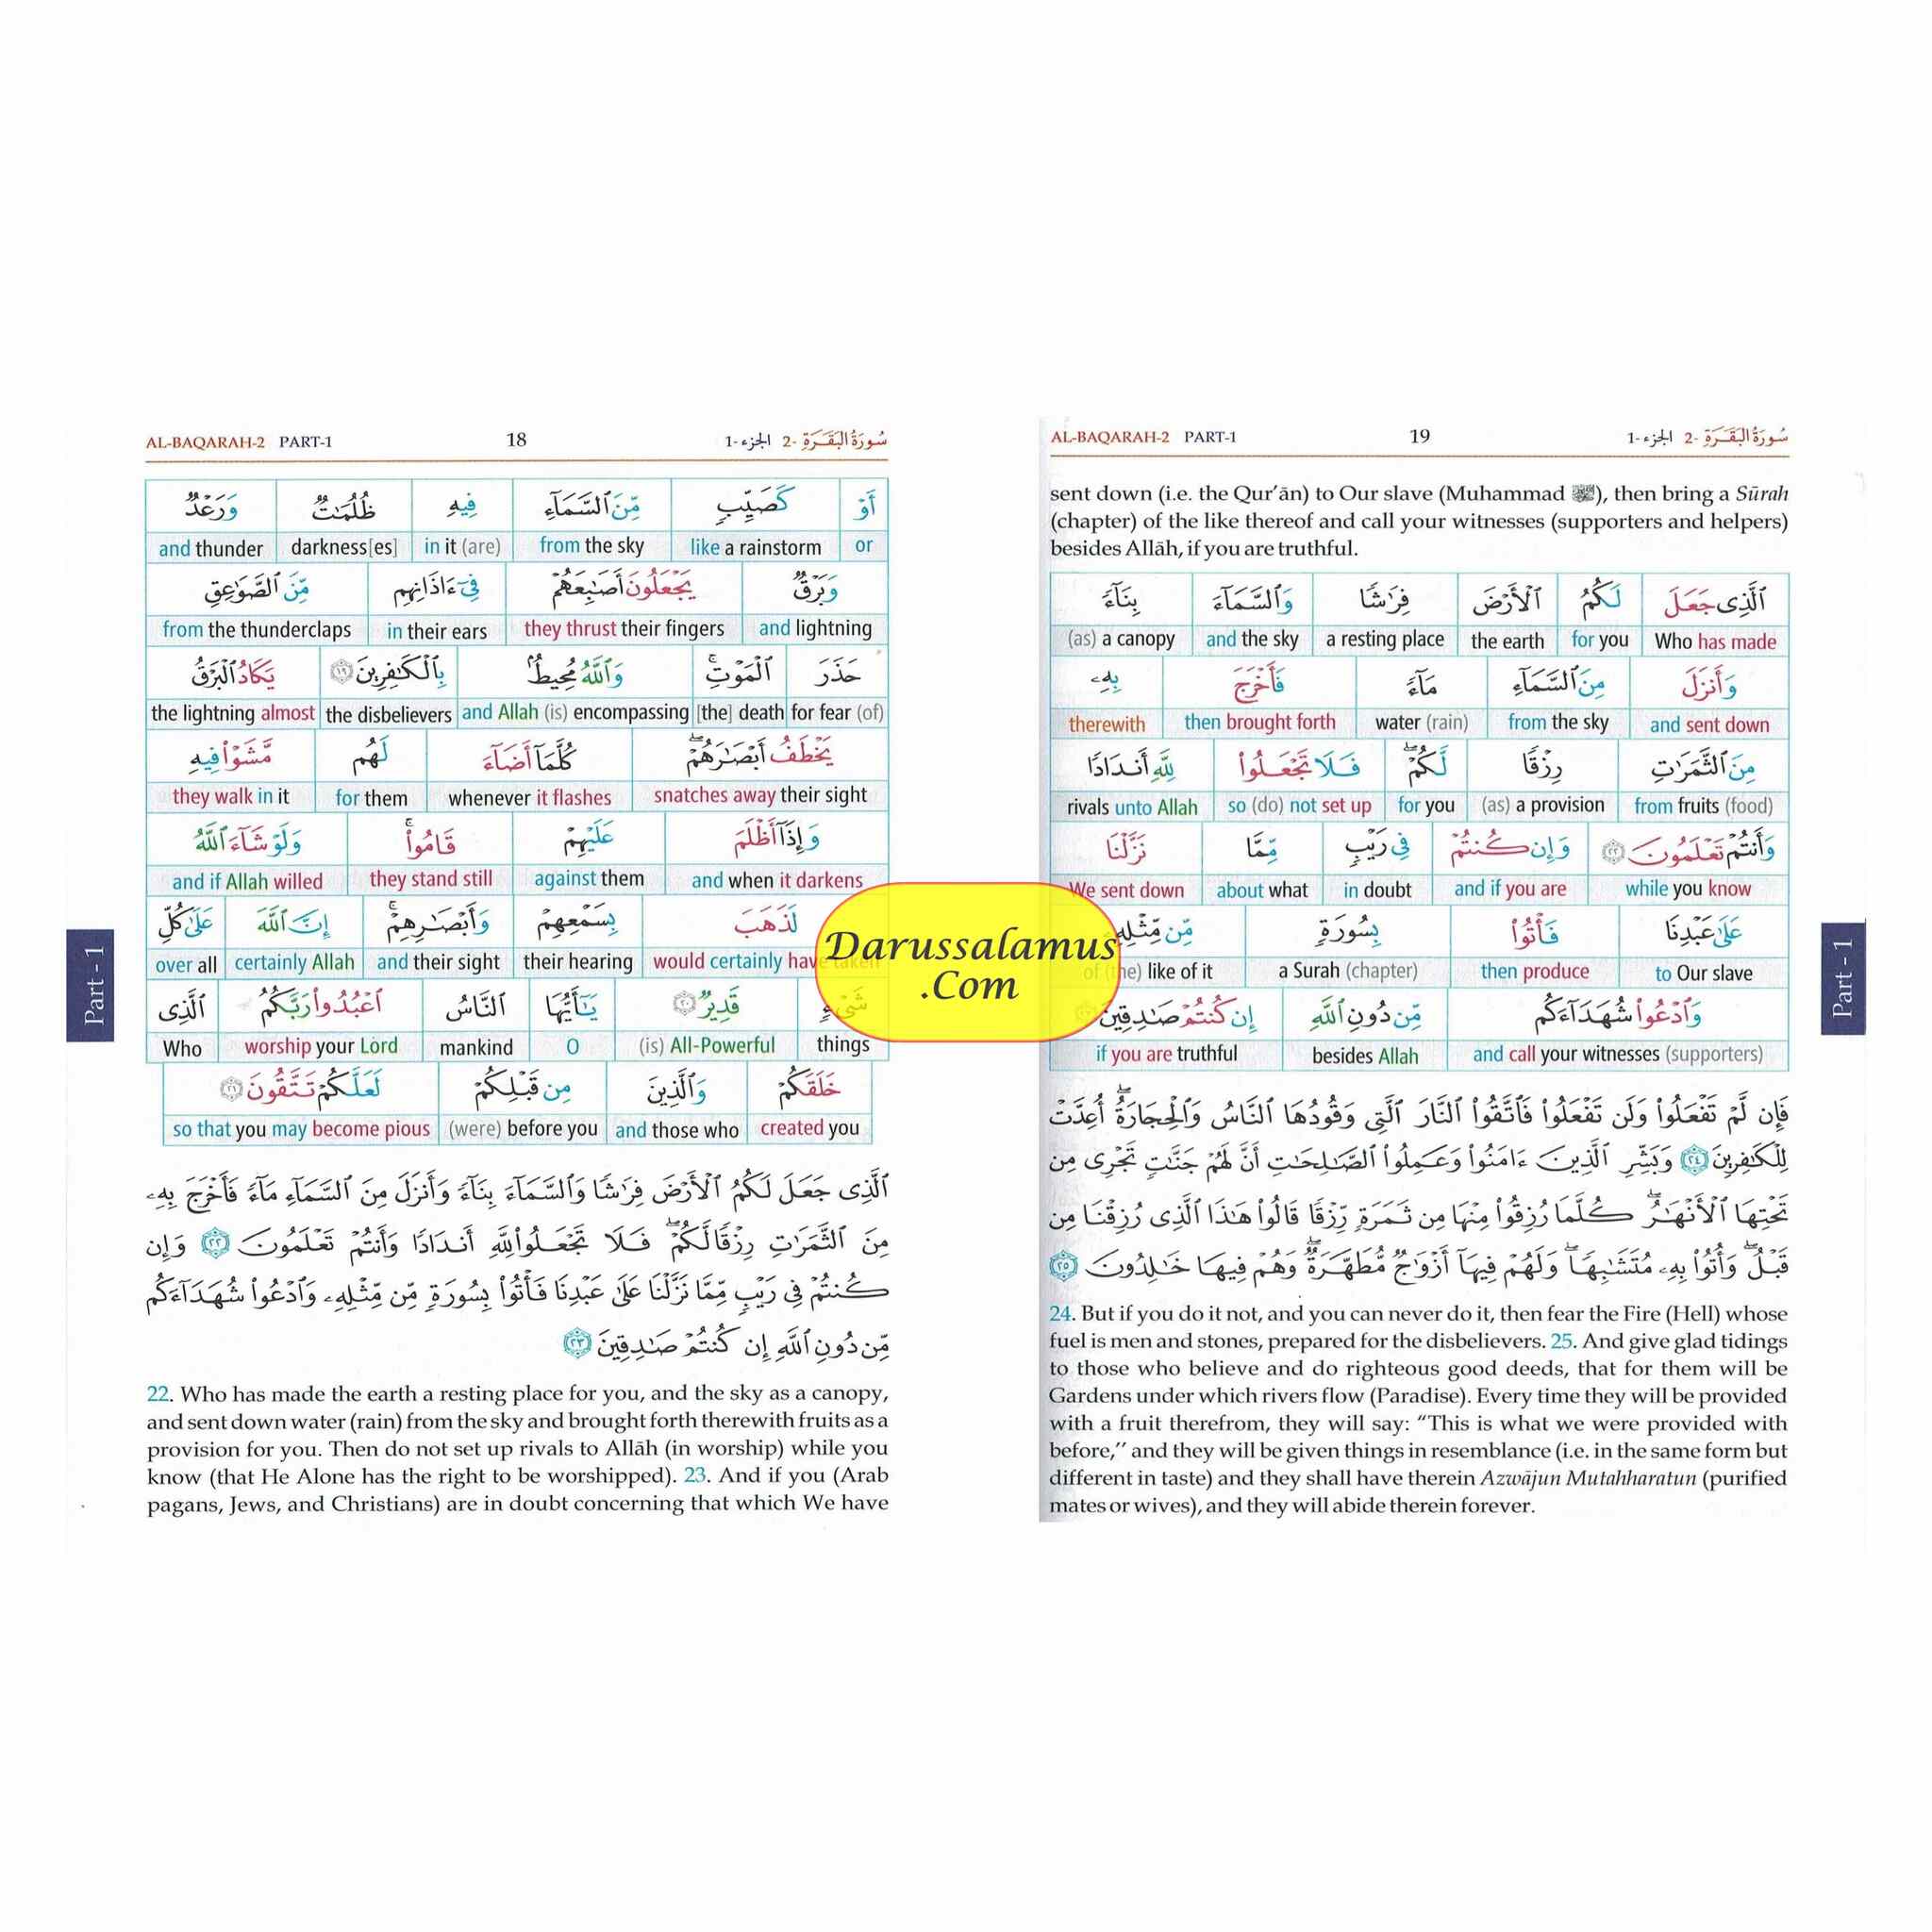 AL-BAQARAH-2 PART-1 18 الجزء-1 سُورَةُ البَقَرَةِ -2
أَوْ كَصَيِّبٍ مِّنَ ٱلسَّمَآءِ فِيهِ ظُلُمَٰتٌ وَرَعْدٌ
or like a rainstorm from the sky in it (are) darkness[es] and thunder
وَبَرْقٌ يَجْعَلُونَ أَصَٰبِعَهُمْ فِىٓ ءَاذَانِهِم مِّنَ ٱلصَّوَٰعِقِ
and lightning they thrust their fingers in their ears from the thunderclaps
حَذَرَ ٱلْمَوْتِ ۚ وَٱللَّهُ مُحِيطٌۢ بِٱلْكَٰفِرِينَ ١٩ يَكَادُ ٱلْبَرْقُ
for fear (of) [the] death and Allah (is) encompassing the disbelievers the lightning almost
يَخْطَفُ أَبْصَٰرَهُمْ ۖ كُلَّمَآ أَضَآءَ لَهُم مَّشَوْا۟ فِيهِ
snatches away their sight whenever it flashes for them they walk in it
وَإِذَآ أَظْلَمَ عَلَيْهِمْ قَامُوا۟ ۚ وَلَوْ شَآءَ ٱللَّهُ
and when it darkens against them they stand still and if Allah willed
لَذَهَبَ بِسَمْعِهِمْ وَأَبْصَٰرِهِمْ ۚ إِنَّ ٱللَّهَ عَلَىٰ كُلِّ
would certainly have taken their hearing and their sight certainly Allah over all
شَىْءٍ قَدِيرٌ ٢٠ يَٰٓأَيُّهَا ٱلنَّاسُ ٱعْبُدُوا۟ رَبَّكُمُ ٱلَّذِى
things (is) All-Powerful O mankind worship your Lord Who
خَلَقَكُمْ وَٱلَّذِينَ مِن قَبْلِكُمْ لَعَلَّكُمْ تَتَّقُونَ ٢١
created you and those who (were) before you so that you may become pious
ٱلَّذِى جَعَلَ لَكُمُ ٱلْأَرْضَ فِرَٰشًا وَٱلسَّمَآءَ بِنَآءً وَأَنزَلَ مِنَ ٱلسَّمَآءِ مَآءً فَأَخْرَجَ بِهِۦ
مِنَ ٱلثَّمَرَٰتِ رِزْقًا لَّكُمْ ۖ فَلَا تَجْعَلُوا۟ لِلَّهِ أَندَادًا وَأَنتُمْ تَعْلَمُونَ ٢٢ وَإِن
كُنتُمْ فِى رَيْبٍ مِّمَّا نَزَّلْنَا عَلَىٰ عَبْدِنَا فَأْتُوا۟ بِسُورَةٍ مِّن مِّثْلِهِۦ وَٱدْعُوا۟ شُهَدَآءَكُم
مِّن دُونِ ٱللَّهِ إِن كُنتُمْ صَٰدِقِينَ ٢٣
22. Who has made the earth a resting place for you, and the sky as a canopy,
and sent down water (rain) from the sky and brought forth therewith fruits as a
provision for you. Then do not set up rivals to Allāh (in worship) while you
know (that He Alone has the right to be worshipped). 23. And if you (Arab
pagans, Jews, and Christians) are in doubt concerning that which We have
Part - 1
Darussalamus
.Com
AL-BAQARAH-2 PART-1 19 الجزء-1 سُورَةُ البَقَرَةِ -2
sent down (i.e. the Qur’ān) to Our slave (Muhammad ﷺ), then bring a Sūrah
(chapter) of the like thereof and call your witnesses (supporters and helpers)
besides Allāh, if you are truthful.
ٱلَّذِى جَعَلَ لَكُمُ ٱلْأَرْضَ فِرَٰشًا وَٱلسَّمَآءَ بِنَآءً
Who has made for you the earth a resting place and the sky (as) a canopy
وَأَنزَلَ مِنَ ٱلسَّمَآءِ مَآءً فَأَخْرَجَ بِهِۦ
and sent down from the sky water (rain) then brought forth therewith
مِنَ ٱلثَّمَرَٰتِ رِزْقًا لَّكُمْ ۖ فَلَا تَجْعَلُوا۟ لِلَّهِ أَندَادًا
from fruits (food) (as) a provision for you so (do) not set up rivals unto Allah
وَأَنتُمْ تَعْلَمُونَ ٢٢ وَإِن كُنتُمْ فِى رَيْبٍ مِّمَّا نَزَّلْنَا
while you know and if you are in doubt about what We sent down
عَلَىٰ عَبْدِنَا فَأْتُوا۟ بِسُورَةٍ مِّن مِّثْلِهِۦ
to Our slave then produce a Surah (chapter) of (the) like of it
وَٱدْعُوا۟ شُهَدَآءَكُم مِّن دُونِ ٱللَّهِ إِن كُنتُمْ صَٰدِقِينَ
and call your witnesses (supporters) besides Allah if you are truthful
فَإِن لَّمْ تَفْعَلُوا۟ وَلَن تَفْعَلُوا۟ فَٱتَّقُوا۟ ٱلنَّارَ ٱلَّتِى وَقُودُهَا ٱلنَّاسُ وَٱلْحِجَارَةُ ۖ أُعِدَّتْ
لِلْكَٰفِرِينَ ٢٤ وَبَشِّرِ ٱلَّذِينَ ءَامَنُوا۟ وَعَمِلُوا۟ ٱلصَّٰلِحَٰتِ أَنَّ لَهُمْ جَنَّٰتٍ تَجْرِى مِن
تَحْتِهَا ٱلْأَنْهَٰرُ ۖ كُلَّمَا رُزِقُوا۟ مِنْهَا مِن ثَمَرَةٍ رِّزْقًا قَالُوا۟ هَٰذَا ٱلَّذِى رُزِقْنَا مِن
قَبْلُ ۖ وَأُتُوا۟ بِهِۦ مُتَشَٰبِهًا ۖ وَلَهُمْ فِيهَآ أَزْوَٰجٌ مُّطَهَّرَةٌ ۖ وَهُمْ فِيهَا خَٰلِدُونَ ٢٥
24. But if you do it not, and you can never do it, then fear the Fire (Hell) whose
fuel is men and stones, prepared for the disbelievers. 25. And give glad tidings
to those who believe and do righteous good deeds, that for them will be
Gardens under which rivers flow (Paradise). Every time they will be provided
with a fruit therefrom, they will say: “This is what we were provided with
before,” and they will be given things in resemblance (i.e. in the same form but
different in taste) and they shall have therein Azwājun Mutahharatun (purified
mates or wives), and they will abide therein forever.
Part - 1